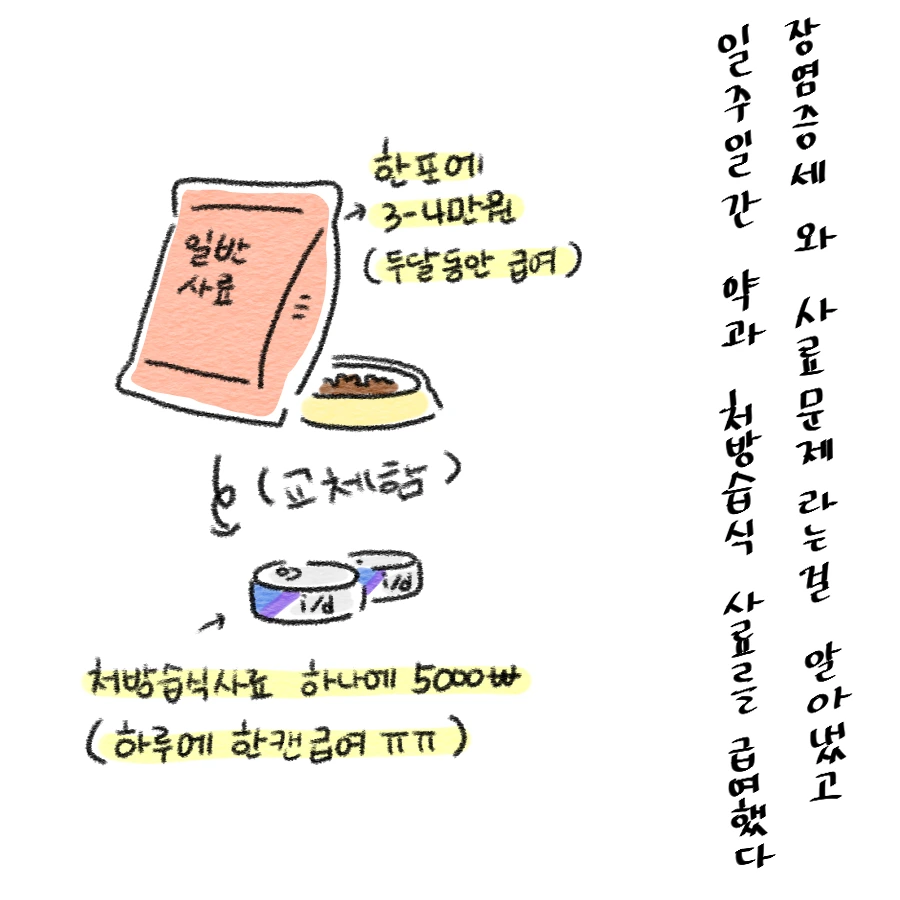 장염증세 와 사료문제 라는걸 알아냈고
일주일간 약과 처방습식 사료를 급여했다
한포에
3-4만원
(두달동안 급여)
일반
사료
(교체함)
i/d
i/d
처방습식사료 하나에 5000₩
(하루에 한캔급여 ㅠㅠ)